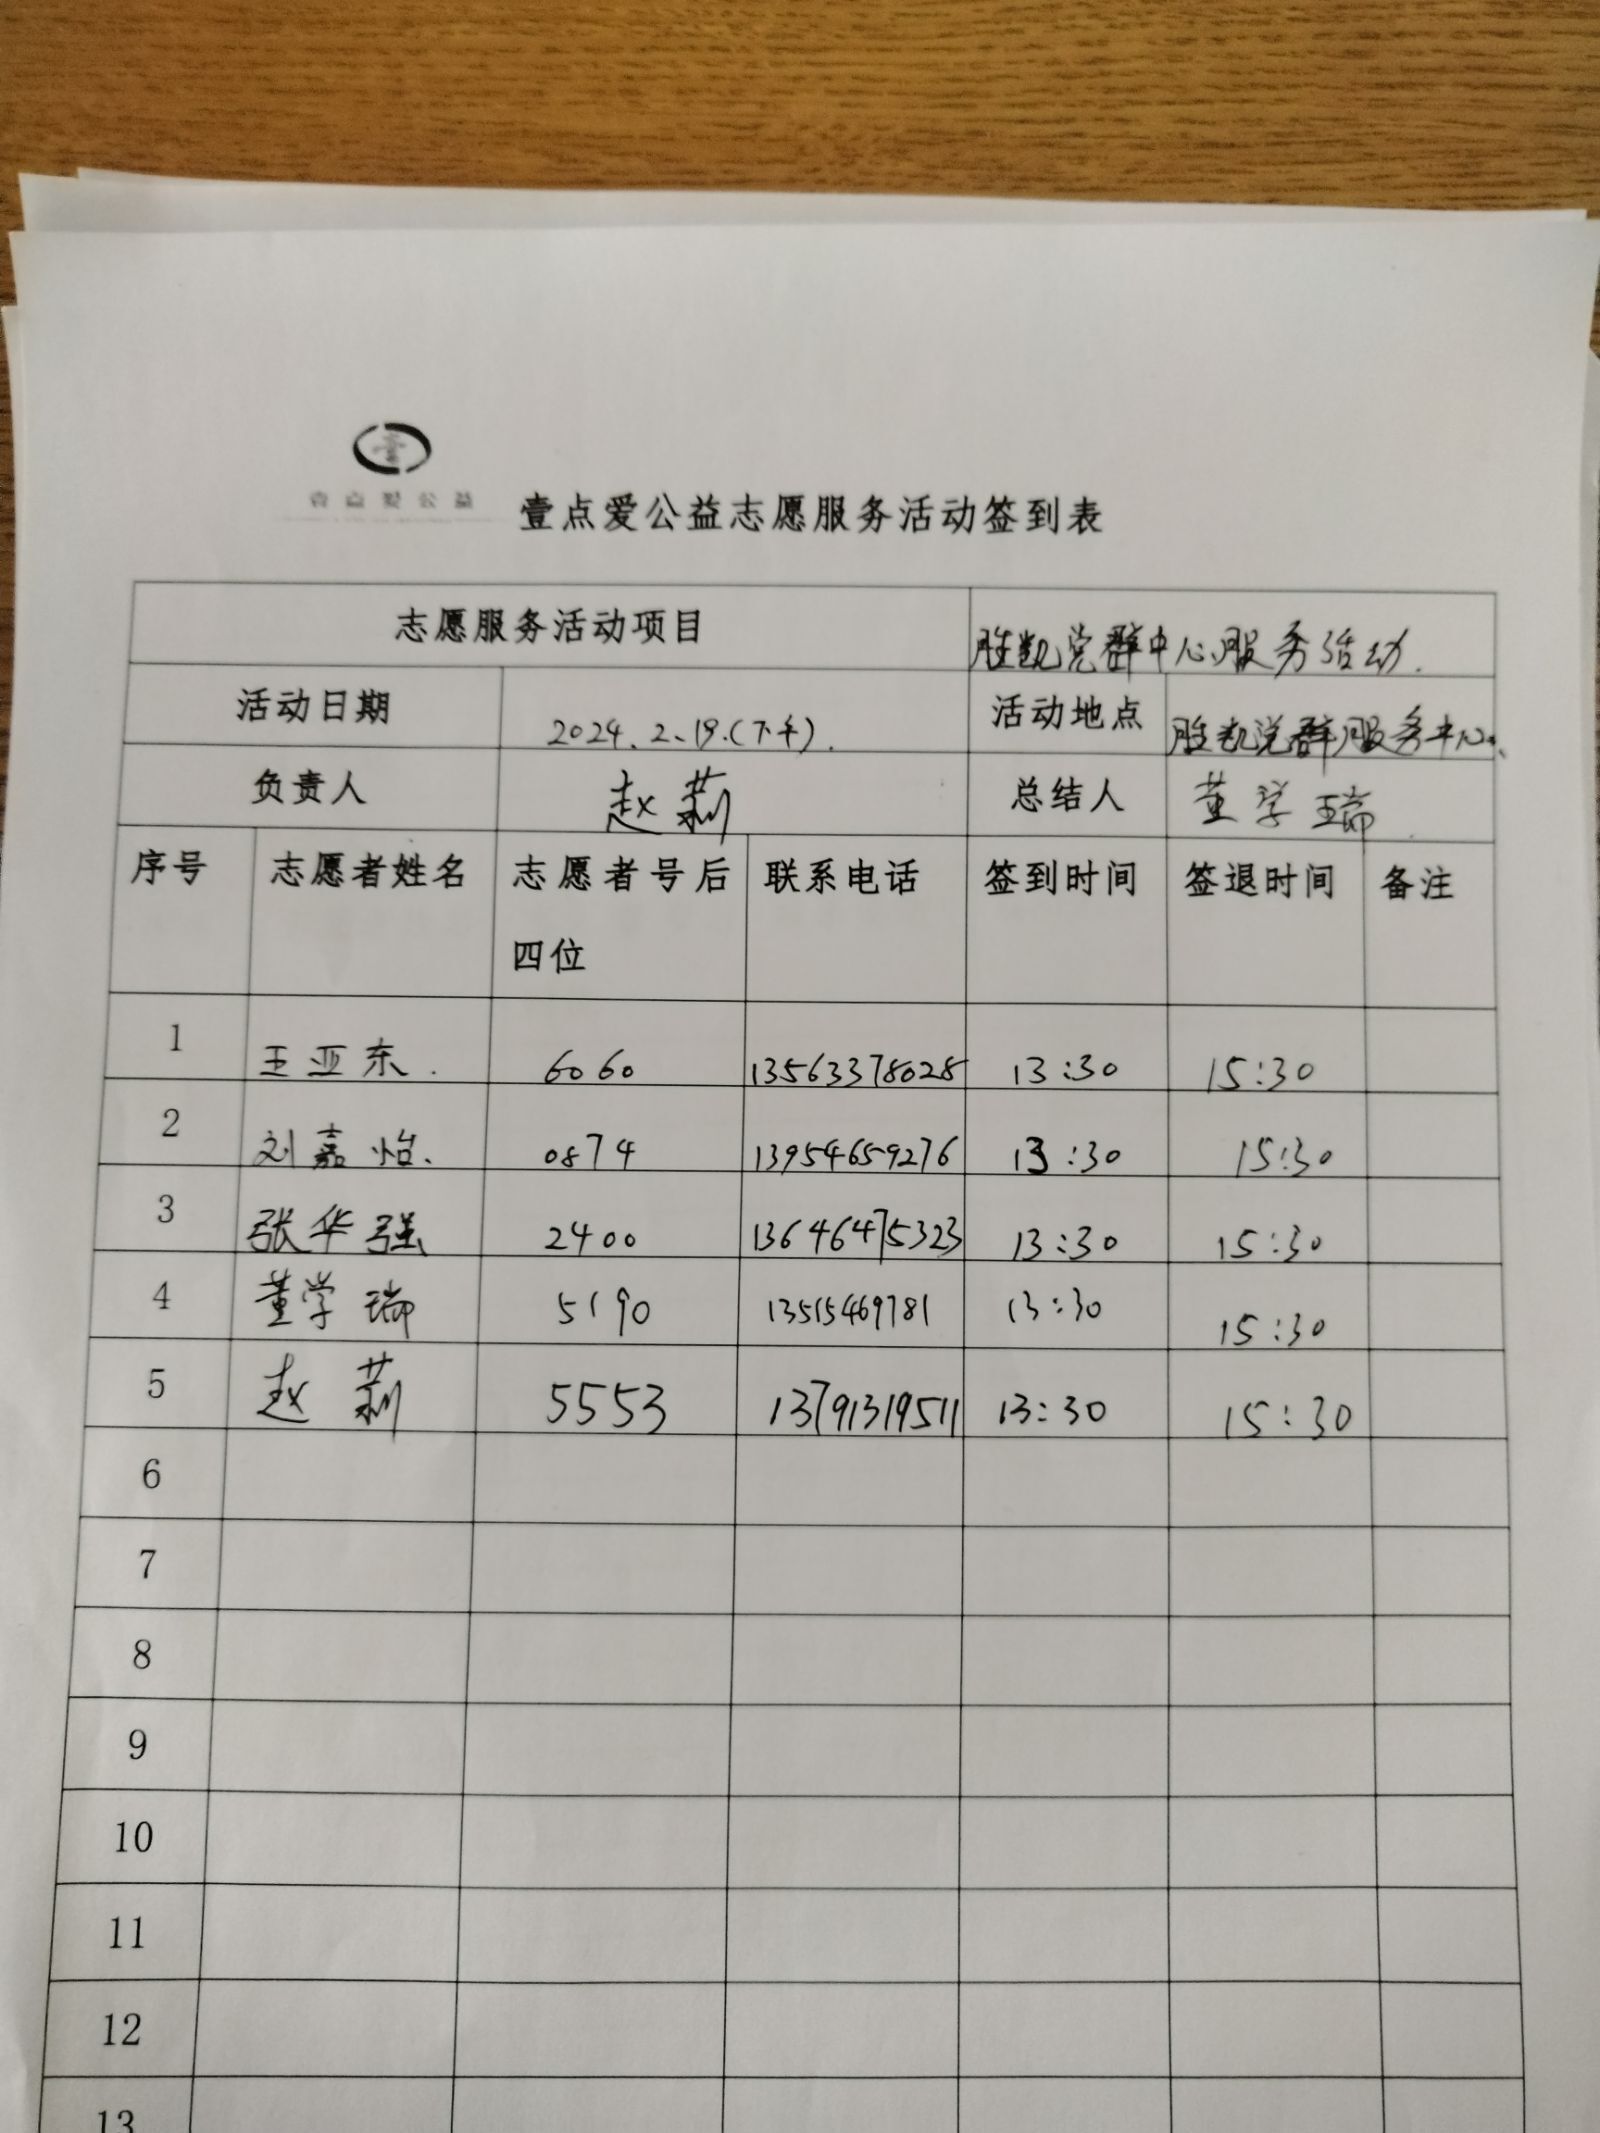 壹点爱公益
壹点爱公益志愿服务活动签到表
志愿服务活动项目 胜凯党群中心服务活动.
活动日期 2024.2.19.(下午). 活动地点 胜凯党群服务中心.
负责人 赵莉 总结人 董学瑞
序号 志愿者姓名 志愿者号后四位 联系电话 签到时间 签退时间 备注
1 王亚东. 6060 13563378028 13:30 15:30
2 刘嘉怡. 0874 13954659276 13:30 15:30
3 张华强 2400 13646475323 13:30 15:30
4 董学瑞 5190 13515469781 13:30 15:30
5 赵莉 5553 13791319511 13:30 15:30
6
7
8
9
10
11
12
13